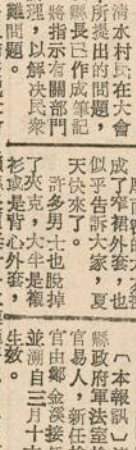 清水村民在大會
所提出的問題，
縣長已作成筆記
將指示有關部門
理，以解決民衆
難問題。
成了窄裙外套，也
似乎告訴大家，夏
天快來了。
許多男士也脫掉
了夾克，大半是襯
衫或是背心外套，
〔本報訊〕
縣政府軍法室檢
官易人，新任檢
官由鄭金溪接任
並溯自三月十
生效。